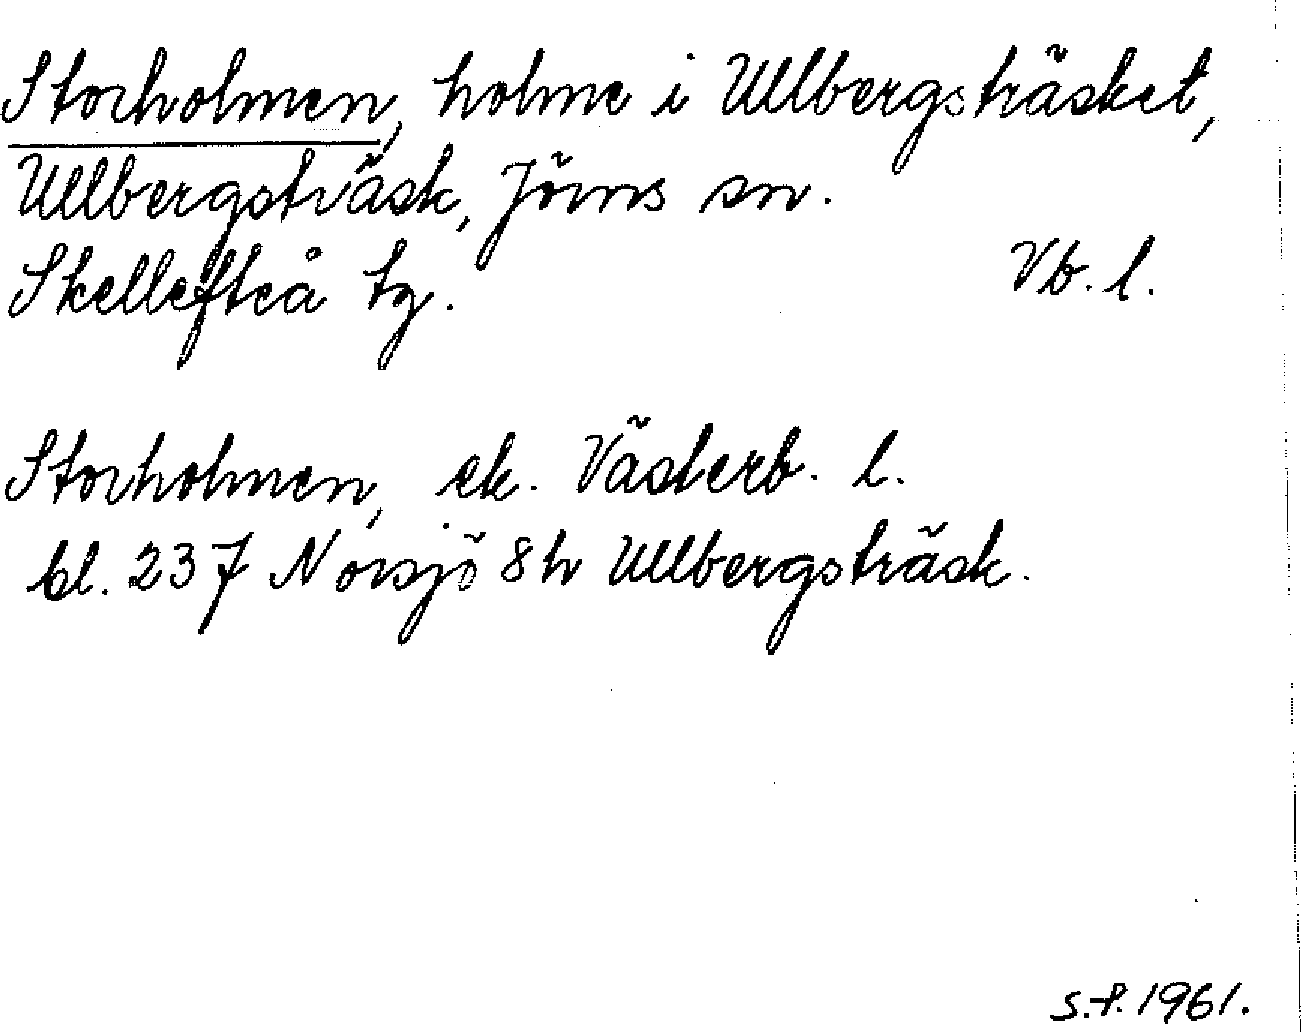 Storholmen, holme i Ullbergsträsket,
Ullbergsträsk, Jörns sn.
Skellefteå tg. Vb. l.
Storholmen, ek. Västerb. l.
bl. 237 Norsjö 8h Ullbergsträsk.
S.P. 1961.